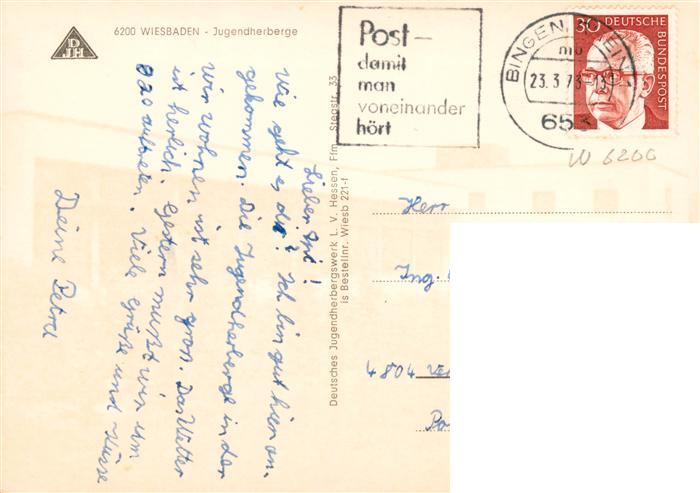 DJH
6200 WIESBADEN - Jugendherberge
Lieber
wie geht es dir? Ich bin gut hier an-
gekommen. Die Jugendherberge in der
wir wohnen ist sehr groß. Das Wetter
ist herlich. Gestern mußt wir um
auftreten. Viele Grüße und Küsse
Deine Petra
Deutsches Jugendherbergswerk L. V. Hessen, Ffm., Stegstr. 33
is Bestellnr. Wiesb 221-f
Post –
damit
man
voneinander
hört
BINGEN, RHEIN
mb
23.3.73
653
30 DEUTSCHE
BUNDESPOST
W 6200
Herr
Ing.
4804